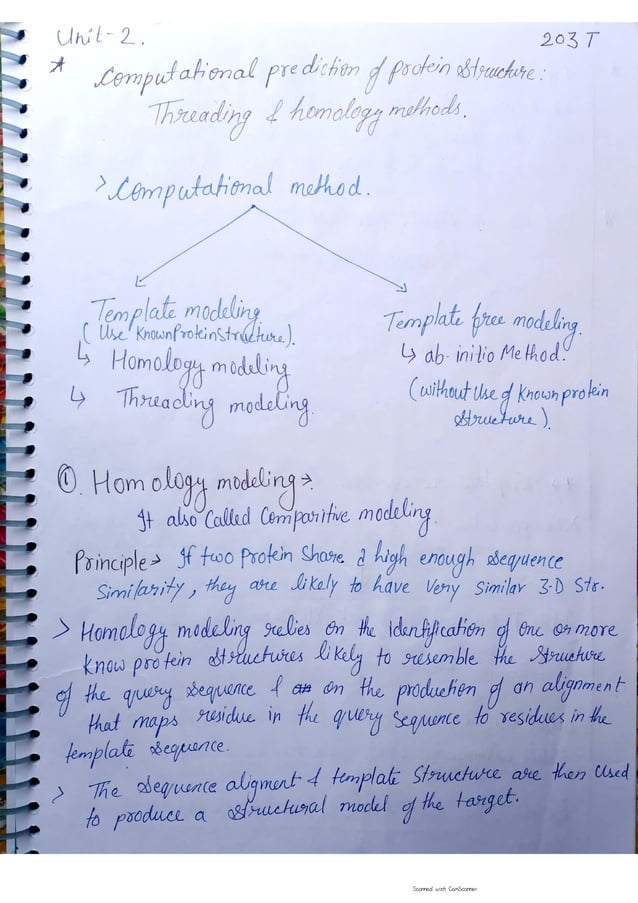 Unit-2. 203T
* Computational prediction of protein Structure:
Threading & homology methods.
> Computational method.
Template modeling
(Use Known Protein Structure).
↳ Homology modeling
↳ Threading modeling.
Template free modeling.
↳ ab-initio Method.
(without Use of Known protein
Structure).
①. Homology modeling →.
It also Called Comparitive modeling.
Principle → If two Protein Share a high enough Sequence
Similarity, they are likely to have Very Similar 3-D Str.
> Homology modeling relies on the identification of one or more
Know protein structures likely to resemble the Structure
of the query sequence & on the production of an alignment
that maps residue in the query Sequence to residues in the
template sequence.
> The Sequence aligment & template Structure are then Used
to produce a structural model of the target.
Scanned with CamScanner